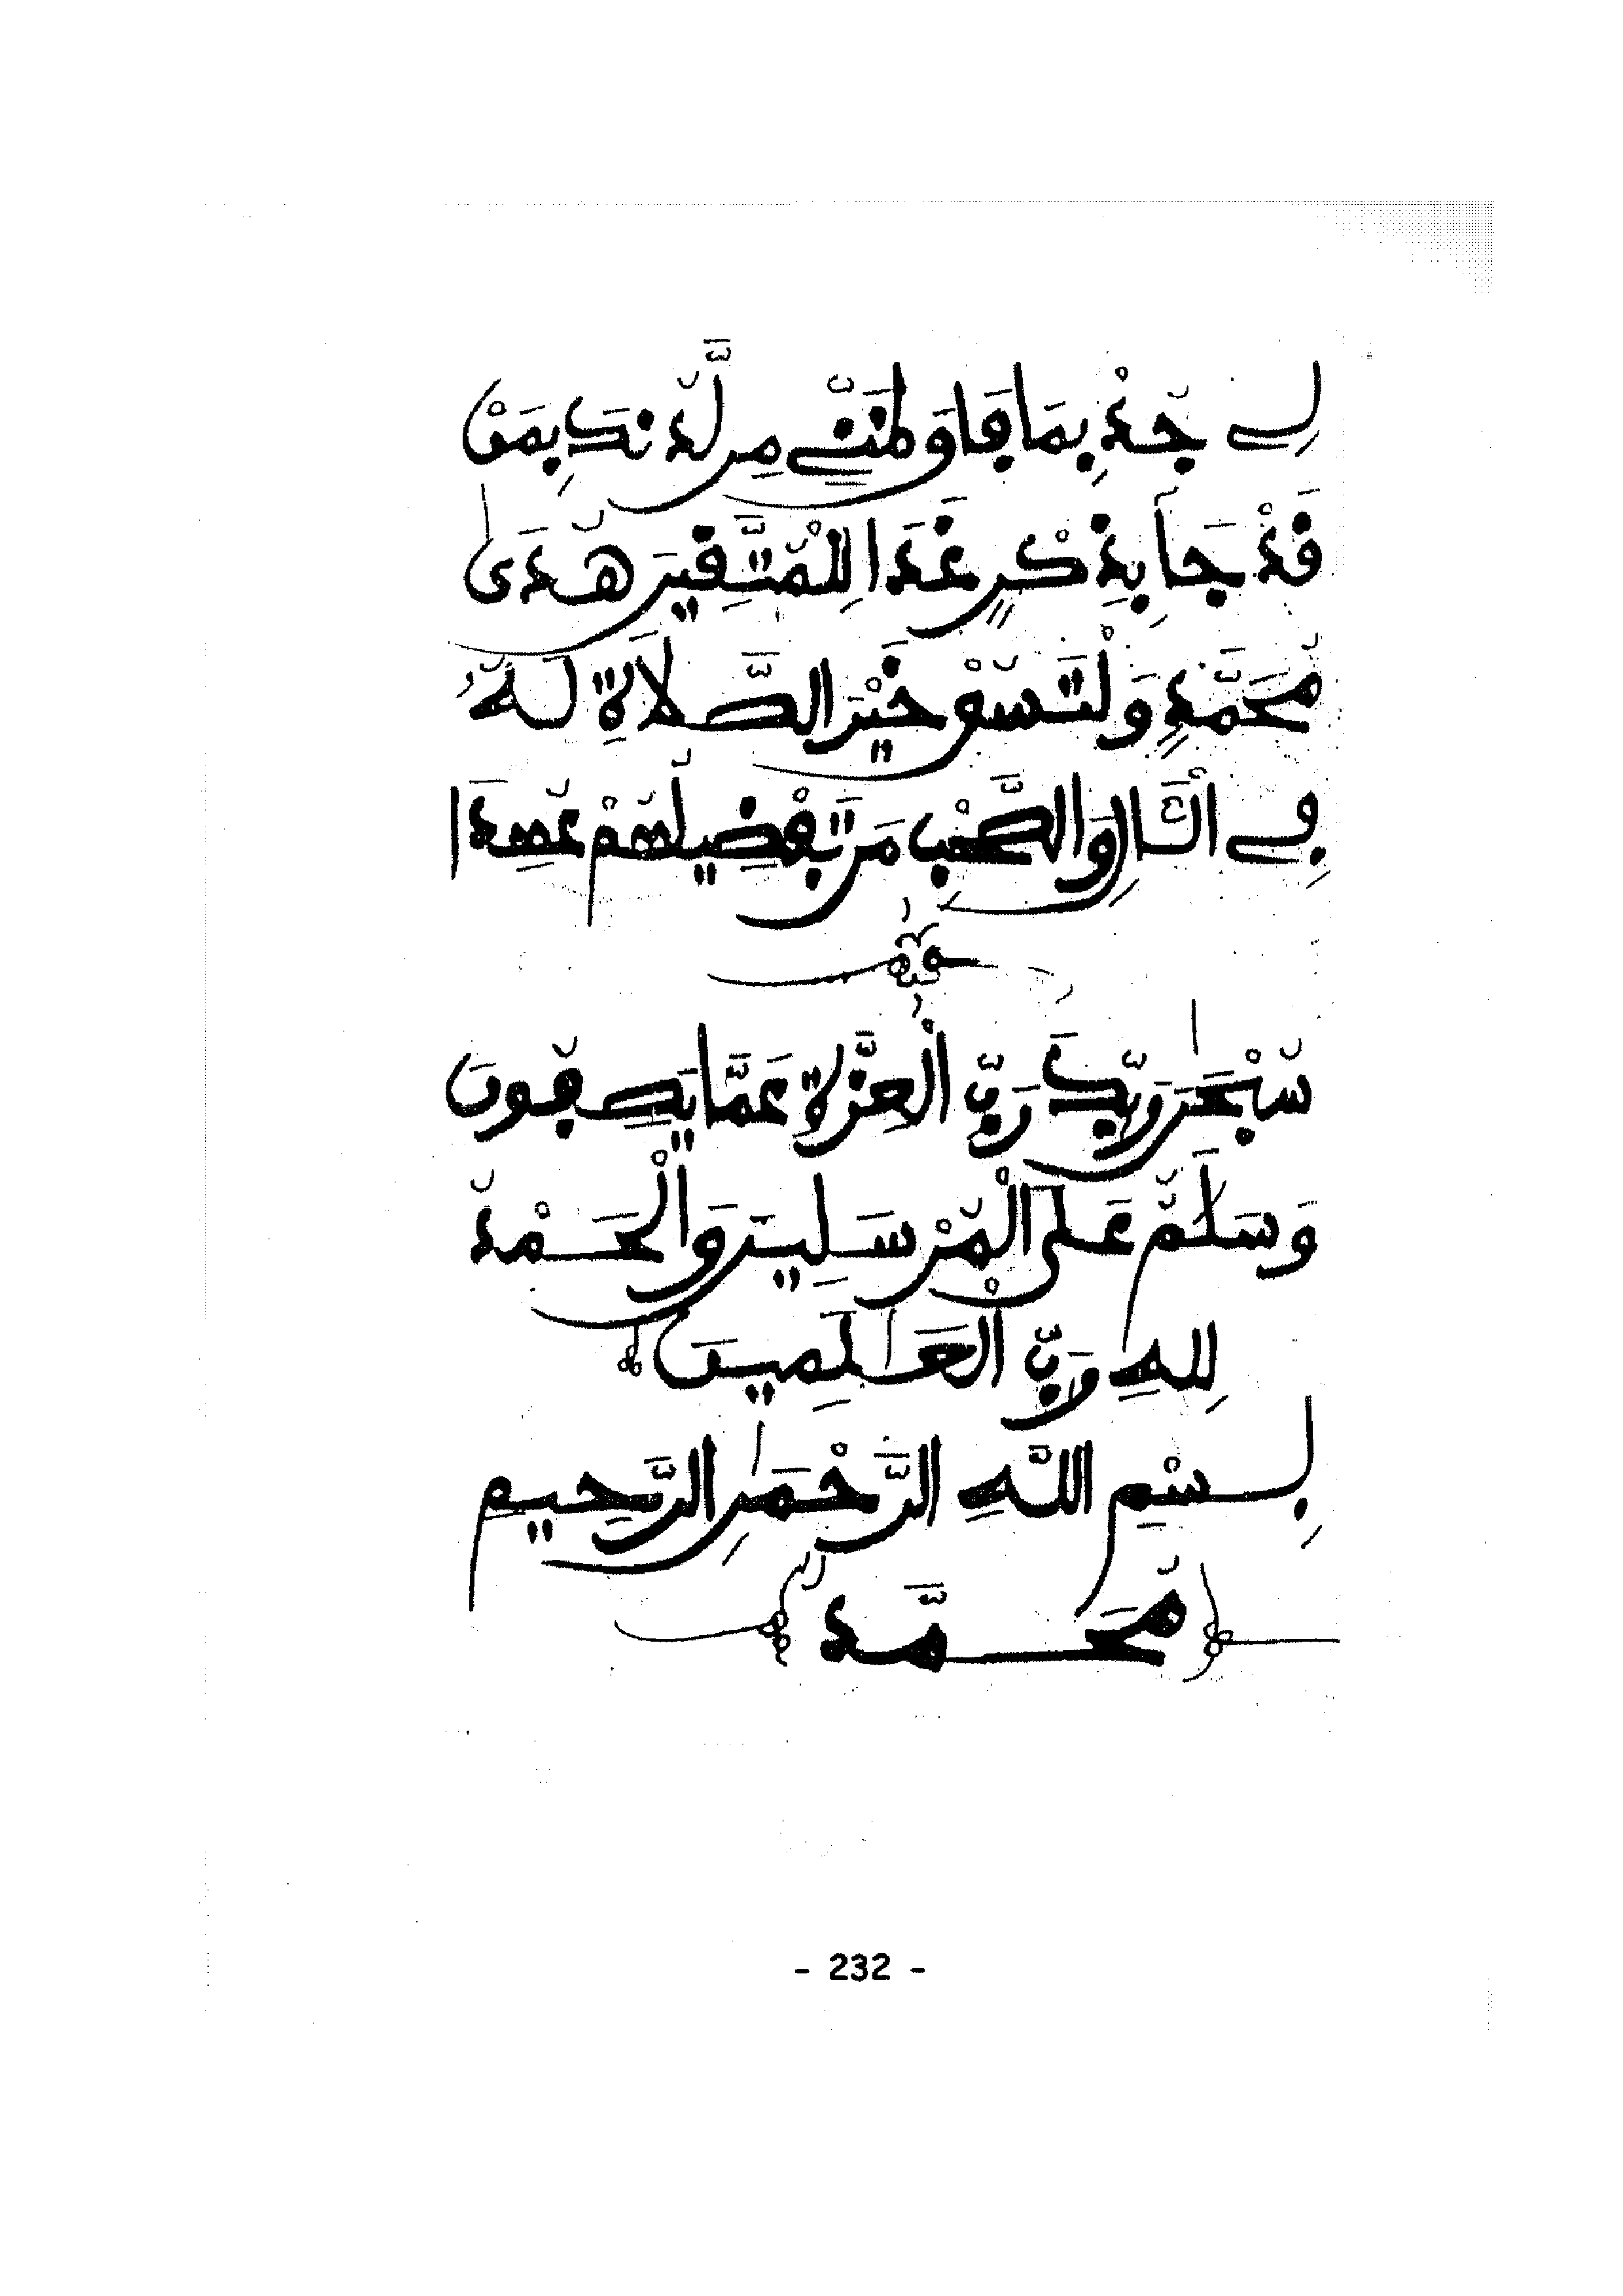 لِي جُدْ بِمَا فَاوَ لَمُنًى مِن لَّدُنكَ يَمَنْ
قَدْ جَا بِذِكْرٍ غَدَا لِلْمُتَّقِينَ هُدَى
مُحَمَّدٍ وَلْتَسُقْ خَيْرَ الصَّلَاةِ لَهُ
فِي الْئَالِ وَالصَّحْبِ مَن تَفْضِيلُهُمْ عُهِدَا
سُبْحَٰنَ رَبِّكَ رَبِّ الْعِزَّةِ عَمَّا يَصِفُونَ
وَسَلَٰمٌ عَلَى الْمُرْسَلِينَ وَالْحَمْدُ
لِلهِ رَبِّ الْعَٰلَمِينَ
بِسْمِ اللَّهِ الرَّحْمَٰنِ الرَّحِيمِ
مُحَمَّدٌ
- 232 -